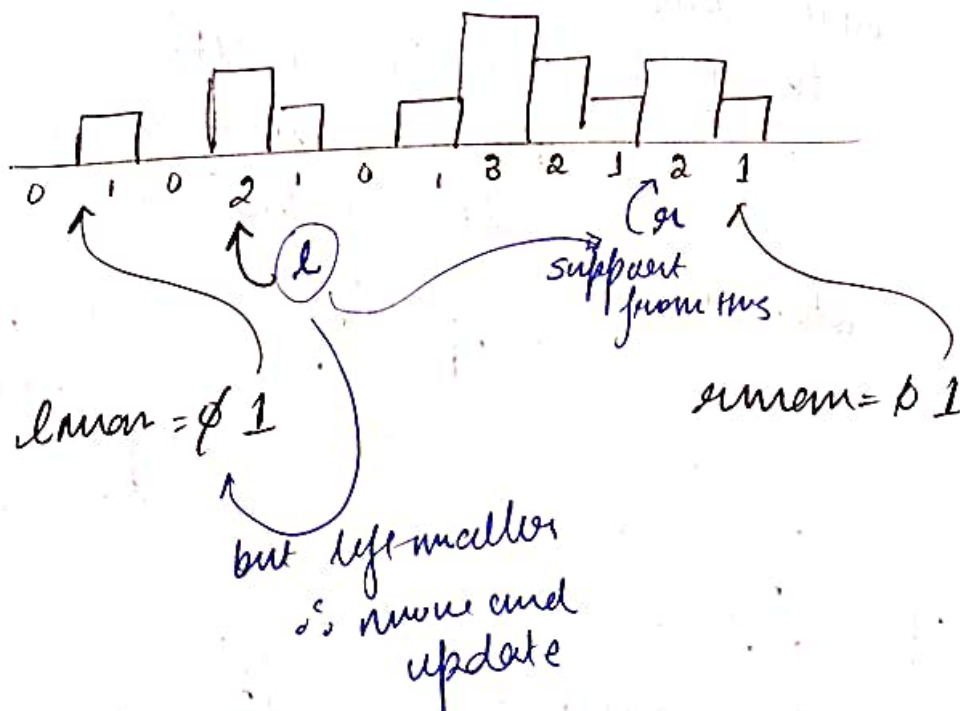 0 1 0 2 1 0 1 3 2 1 2 1
l
r
support
from this
lmax = 0 1
rmax = 0 1
but left smaller
∴ move and
update